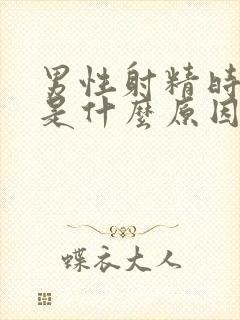 男性射精時
是什麼原因
蝶衣大人